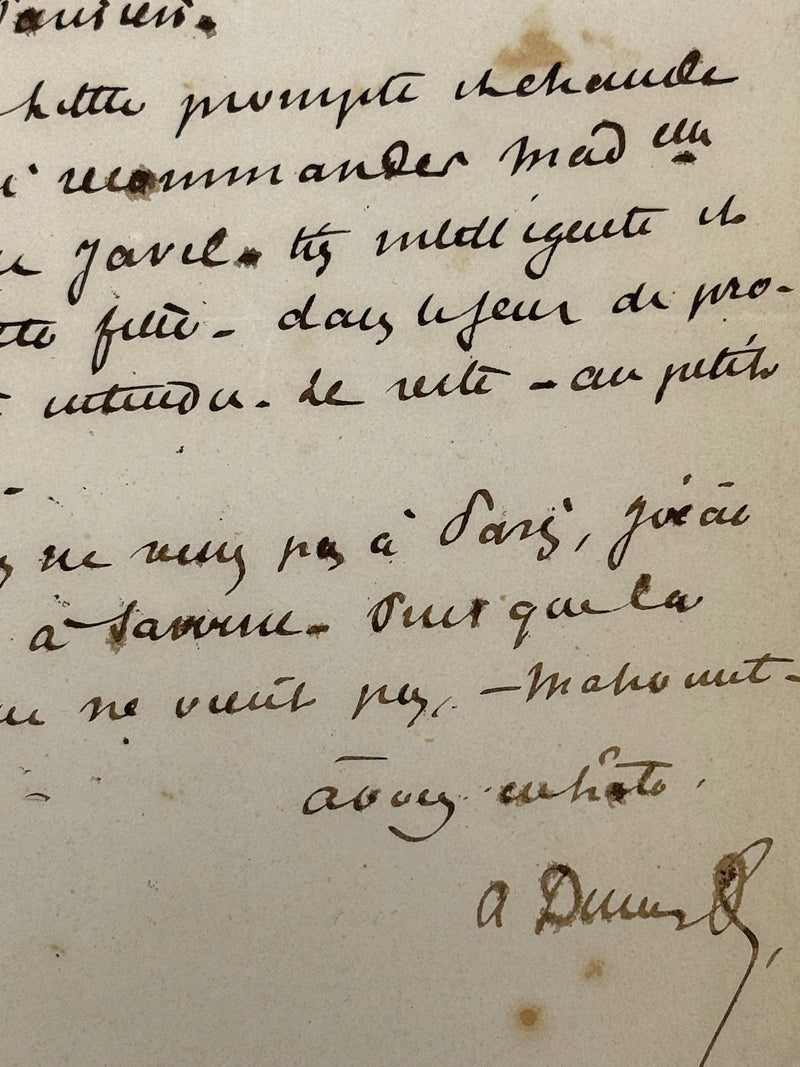 prompte et chaude
recommander Mad elle
Javel. très intelligente et
fille – dans le jeu de pro-
entendu. Le reste – au petit
ne venez pas à Paris, j'irai
à Puisque la
ne vient pas, – Mahomet –
à vous en hâte.
A Dumas